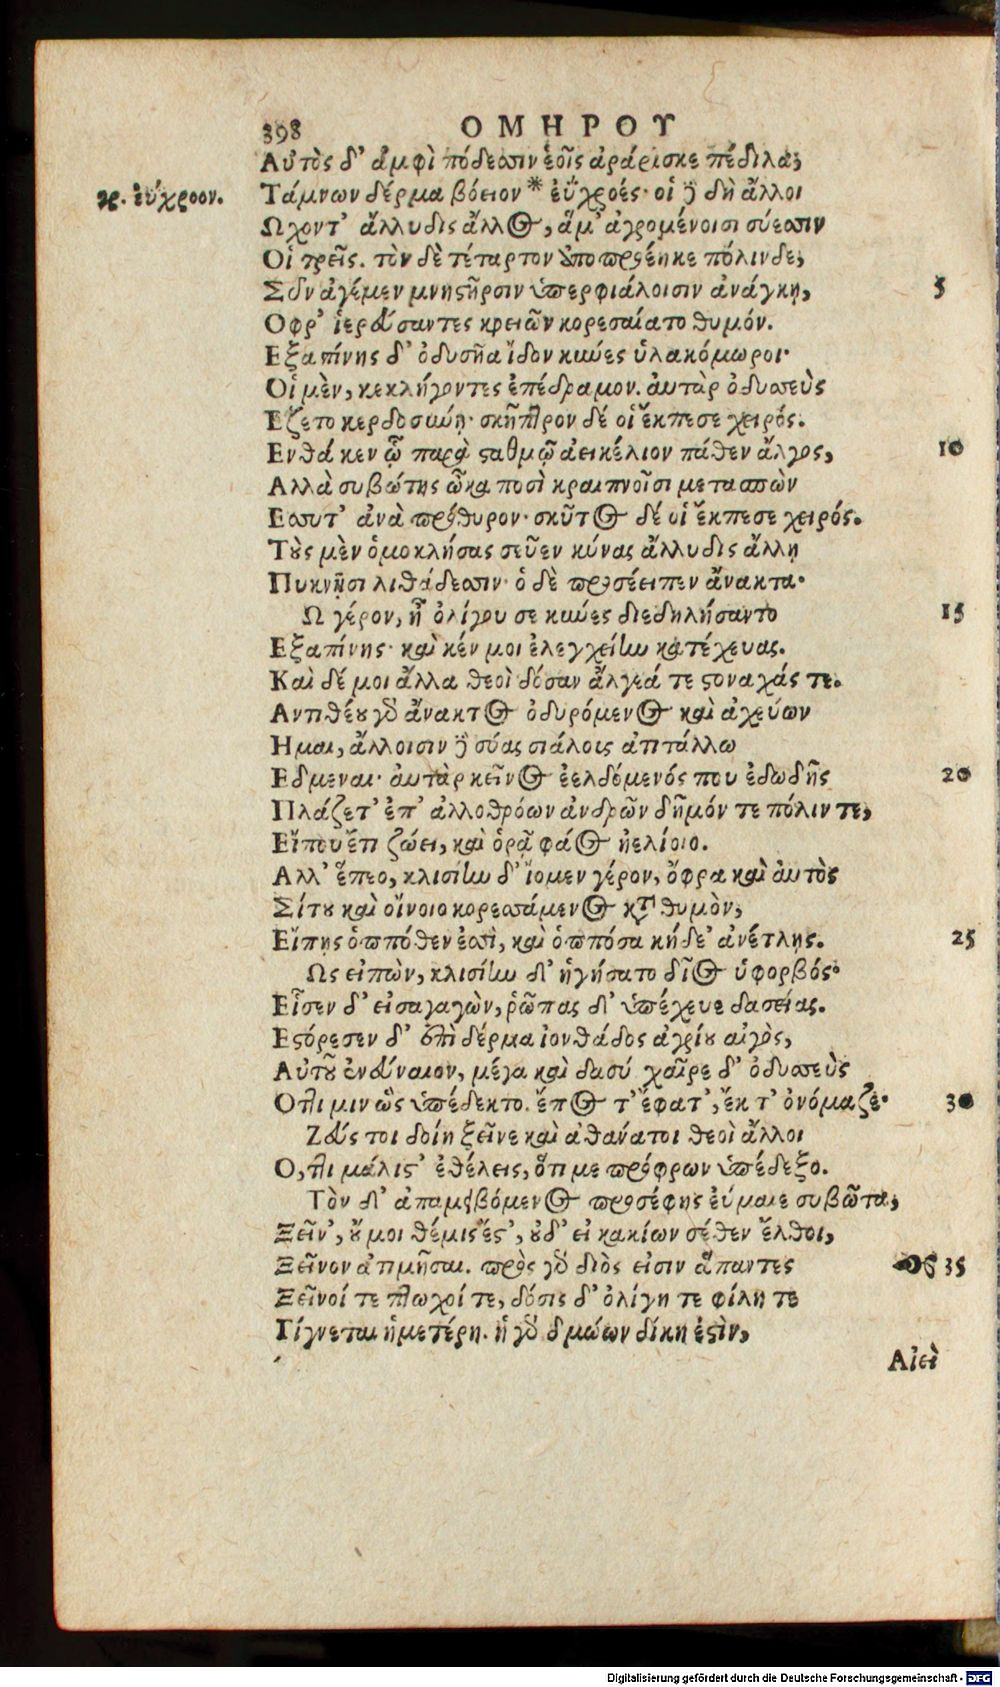 398 ΟΜΗΡΟΥ
Αὐτὸς δ' ἀμφὶ πόδεσσιν ἑοῖς ἀράρισκε πέδιλα,
γρ. ἐΰχροον. Τάμνων δέρμα βόειον * ἐϋχροές· οἱ ἢ δὴ ἄλλοι
Ωχοντ' ἄλλυδις ἄλλος, ἅμ' ἀγρομένοισι σύεσσιν
Οἱ τρεῖς. τὸν δὲ τέταρτον ἀποπροέηκε πόλινδε,
Σῦν ἀγέμεν μνηστῆρσιν ὑπερφιάλοισιν ἀνάγκη, 5
Οφρ' ἱερεύσαντες κρειῶν κορεσαίατο θυμόν.
Εξαπίνης δ' ὀδυσῆα ἴδον κυύες ὑλακόμωροι·
Οἱ μὲν, κεκλήγοντες ἐπέδραμον. αὐτὰρ ὀδυσσεὺς
Εζετο κερδοσύνῃ· σκῆπτρον δέ οἱ ἔκπεσε χειρός.
Ενθά κεν ᾧ παρὰ σταθμῷ ἀεικέλιον πάθεν ἄλγος, 10
Αλλὰ συβώτης ὦκα ποσὶ κραιπνοῖσι μετασπὼν
Εσσυτ' ἀνὰ πρόθυρον· σκῦτος δέ οἱ ἔκπεσε χειρός.
Τοὺς μὲν ὁμοκλήσας σεῦεν κύνας ἄλλυδις ἄλλῃ
Πυκνῇσι λιθάδεσσιν· ὁ δὲ προσέειπεν ἄνακτα·
Ω γέρον, ἦ ὀλίγου σε κύνες διεδηλήσαντο 15
Εξαπίνης· καὶ κέν μοι ἐλεγχείην κατέχευας.
Καὶ δέ μοι ἄλλα θεοὶ δόσαν ἄλγεά τε στοναχάς τε.
Αντιθέου γὸ ἄνακτος ὀδυρόμενος καὶ ἀχεύων
Ημαι, ἄλλοισιν ἢ σύας σιάλους ἀτιτάλλω
Εδμεναι· αὐτὰρ κεῖνος ἐελδόμενός που ἐδωδῆς 20
Πλάζετ' ἐπ' ἀλλοθρόων ἀνδρῶν δῆμόν τε πόλιν τε,
Εἴπου ἔτι ζώει, καὶ ὁρᾷ φάος ἠελίοιο.
Αλλ' ἕπεο, κλισίην δ' ἴομεν γέρον, ὄφρα καὶ αὐτὸς
Σίτου καὶ οἴνοιο κορεσσάμενος κατὰ θυμὸν,
Εἴπῃς ὁππόθεν ἐσσὶ, καὶ ὁππόσα κήδε' ἀνέτλης. 25
Ως εἰπὼν, κλισίην δ' ἡγήσατο δῖος ὑφορβός·
Εἷσεν δ' εἰσαγαγὼν, ῥῶπας δ' ὑπέχευε δασείας.
Εστόρεσεν δ' ἐπὶ δέρμα ἰονθάδος ἀγρίου αἰγὸς,
Αὐτοῦ ἐνεύναιον, μέγα καὶ δασύ χαῖρε δ' ὀδυσσεὺς
Οττι μιν ὣς ὑπέδεκτο. ἔπος τ' ἔφατ', ἔκ τ' ὀνόμαζε· 30
Ζεύς τοι δοίη ξεῖνε καὶ ἀθάνατοι θεοὶ ἄλλοι
Ο, ττι μάλιστ' ἐθέλεις, ὅτι με πρόφρων ὑπέδεξο.
Τὸν δ' ἀπαμειβόμενος προσέφης εὔμαιε συβῶτα,
Ξεῖν', οὔ μοι θέμις ἔστ', οὐδ' εἰ κακίων σέθεν ἔλθοι,
Ξεῖνον ἀτιμῆσαι. πρὸς γὸ διὸς εἰσιν ἅπαντες 35
Ξεῖνοί τε πτωχοί τε, δόσις δ' ὀλίγη τε φίλη τε
Γίγνεται ἡμετέρη. ἡ γὸ δμώων δίκη ἐστὶν,
Αἰεὶ
Digitalisierung gefördert durch die Deutsche Forschungsgemeinschaft - DFG